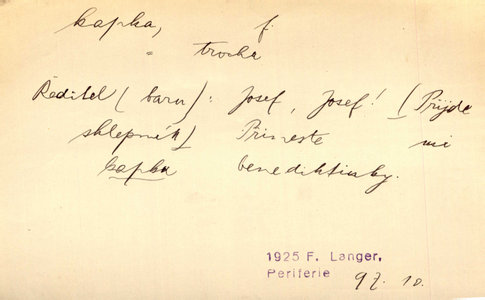 kapka, f.
= trocha
Ředitel (baru): Josef, Josef! [Přijde
sklepník] Přineste mi
kapku benediktinky.
1925 F. Langer,
Periferie 97. 10.